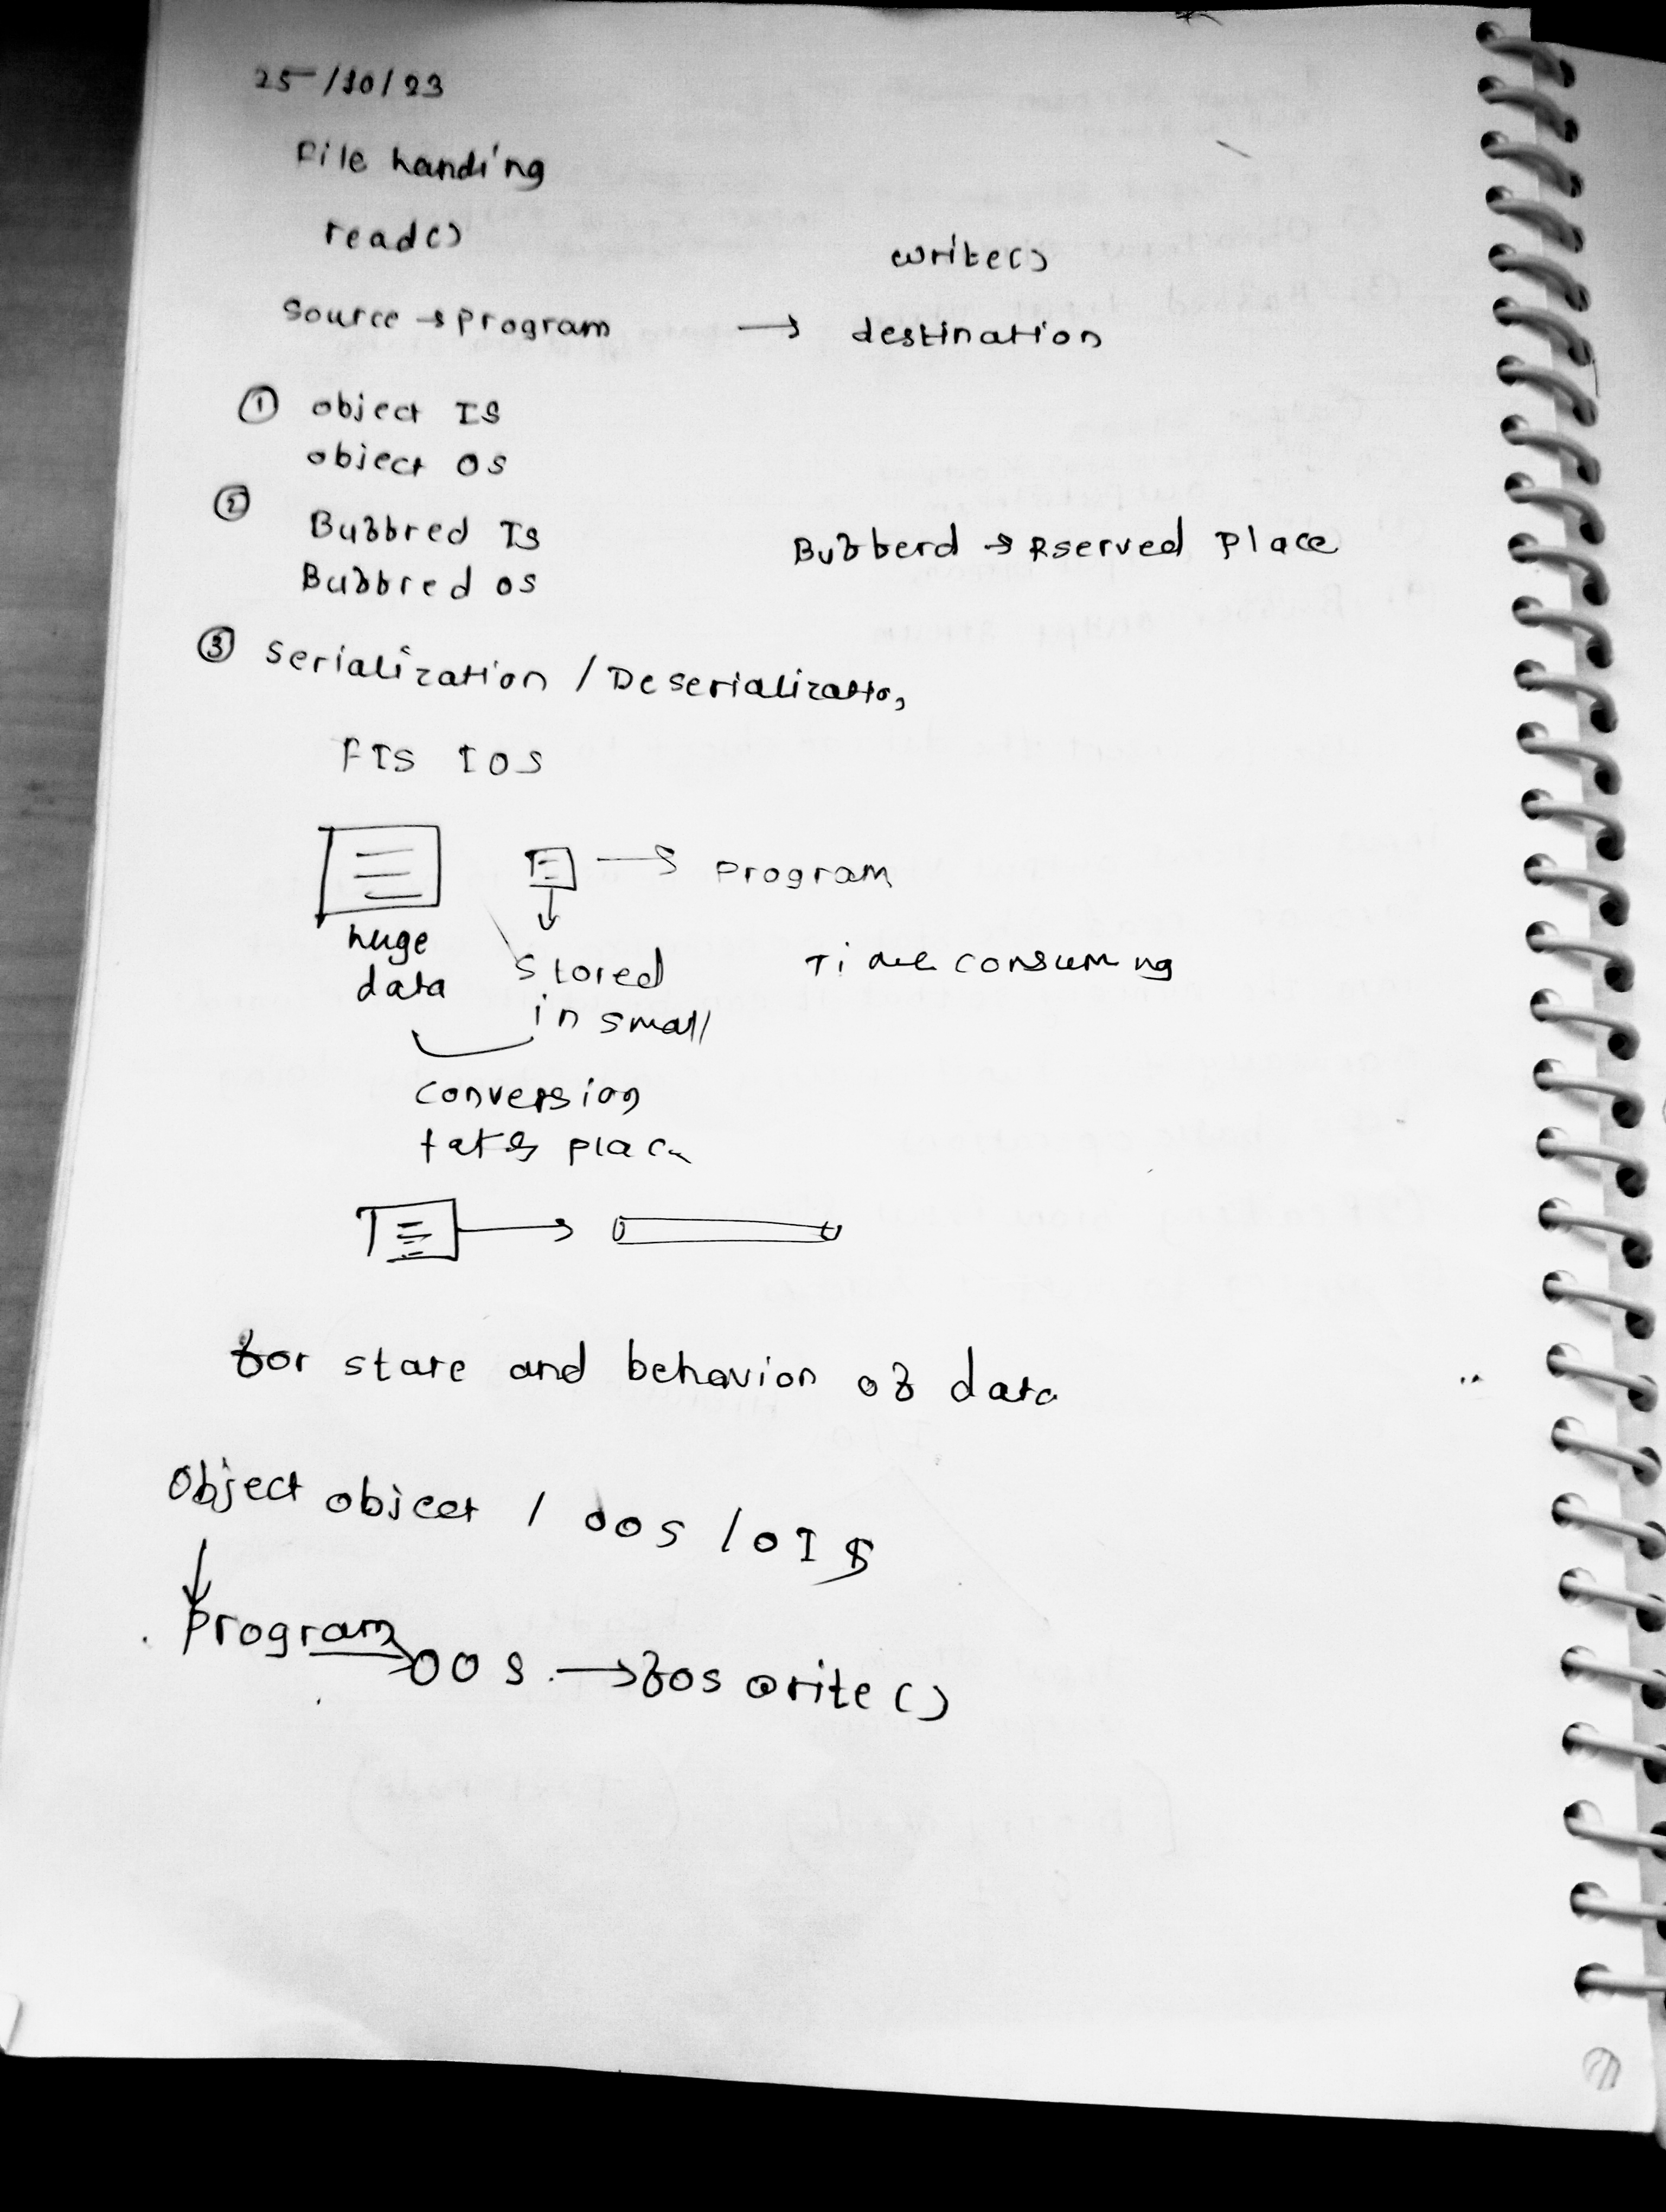 25/10/23
File handing
read()
write()
Source → program → destination
① object IS
object OS
②
Bubbred IS
Bubberd → Rserved place
Bubbred OS
③ Serialization / Deserialization
FIS IOS
→ program
huge
data
Stored
in small
Time consuming
conversion
takes place
for state and behavior of data
Object object / OOS / OIS
program → OOS → fos write()